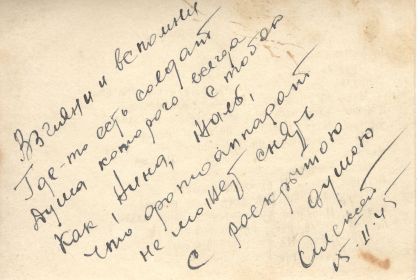 Взгляни и вспомни
Где-то есть солдат
Душа которого всегда
с тобой
Как, Нина, жаль,
что фотоаппарат
не может снять
с раскрытою
душою
Алексей
15.II.45